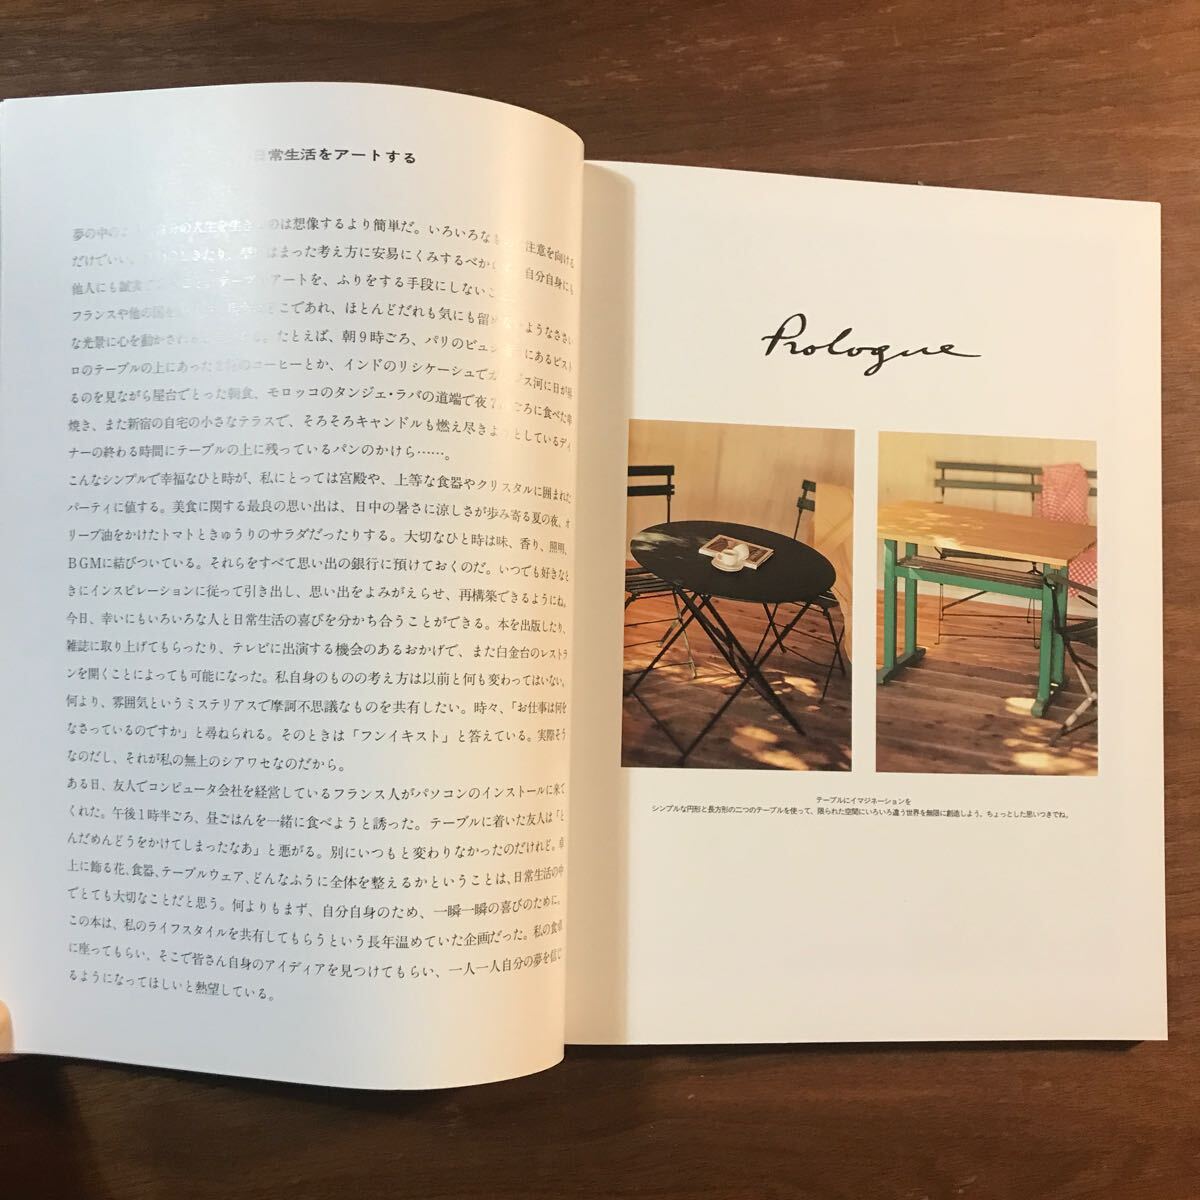 日常生活をアートする
夢の中の 自分の人生を生き のは想像するより簡単だ。いろいろな 注意を向ける
だけでいい。 きたり、 はまった考え方に安易にくみするべか 自分自身にも
他人にも誠実 テーブルアートを、ふりをする手段にしないこ
フランスや他の国 こであれ、ほとんどだれも気にも留 ようなささい
な光景に心を動かされ たとえば、朝9時ごろ、パリのビュ にあるビスト
ロのテーブルの上にあった コーヒーとか、インドのリシケーシュでガ ス河に日が昇
るのを見ながら屋台でとった朝食、モロッコのタンジェ・ラバの道端で夜 ごろに食べた串
焼き、また新宿の自宅の小さなテラスで、そろそろキャンドルも燃え尽きようとしているディ
ナーの終わる時間にテーブルの上に残っているパンのかけら……。
こんなシンプルで幸福なひと時が、私にとっては宮殿や、上等な食器やクリスタルに囲まれた
パーティに値する。美食に関する最良の思い出は、日中の暑さに涼しさが歩み寄る夏の夜、オ
リーブ油をかけたトマトときゅうりのサラダだったりする。大切なひと時は味、香り、照明、
BGMに結びついている。それらをすべて思い出の銀行に預けておくのだ。いつでも好きなと
きにインスピレーションに従って引き出し、思い出をよみがえらせ、再構築できるようにね。
今日、幸いにもいろいろな人と日常生活の喜びを分かち合うことができる。本を出版したり、
雑誌に取り上げてもらったり、テレビに出演する機会のあるおかげで、また白金台のレストラ
ンを開くことによっても可能になった。私自身のものの考え方は以前と何も変わってはいない。
何より、雰囲気というミステリアスで摩訶不思議なものを共有したい。時々、「お仕事は何を
なさっているのですか」と尋ねられる。そのときは「フンイキスト」と答えている。実際そう
なのだし、それが私の無上のシアワセなのだから。
ある日、友人でコンピュータ会社を経営しているフランス人がパソコンのインストールに来て
くれた。午後1時半ごろ、昼ごはんを一緒に食べようと誘った。テーブルに着いた友人は「と
んだめんどうをかけてしまったなあ」と悪がる。別にいつもと変わりなかったのだけれど。卓
上に飾る花、食器、テーブルウェア、どんなふうに全体を整えるかということは、日常生活の中
でとても大切なことだと思う。何よりもまず、自分自身のため、一瞬一瞬の喜びのために。
この本は、私のライフスタイルを共有してもらうという長年温めていた企画だった。私の食卓
に座ってもらい、そこで皆さん自身のアイディアを見つけてもらい、一人一人自分の夢を信じ
るようになってほしいと熱望している。
Prologue
テーブルにイマジネーションを
シンプルな円形と長方形の二つのテーブルを使って、限られた空間にいろいろ違う世界を無限に創造しよう。ちょっとした思いつきでね。